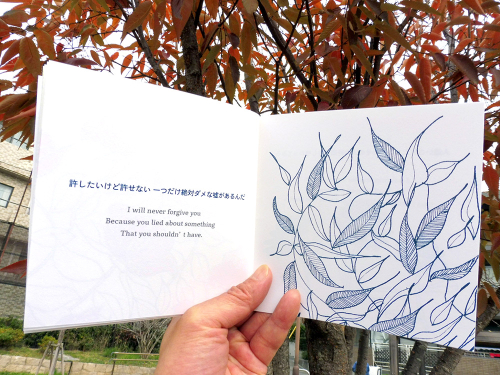 許したいけど許せない 一つだけ絶対ダメな嘘があるんだ
I will never forgive you
Because you lied about something
That you shouldn't have.